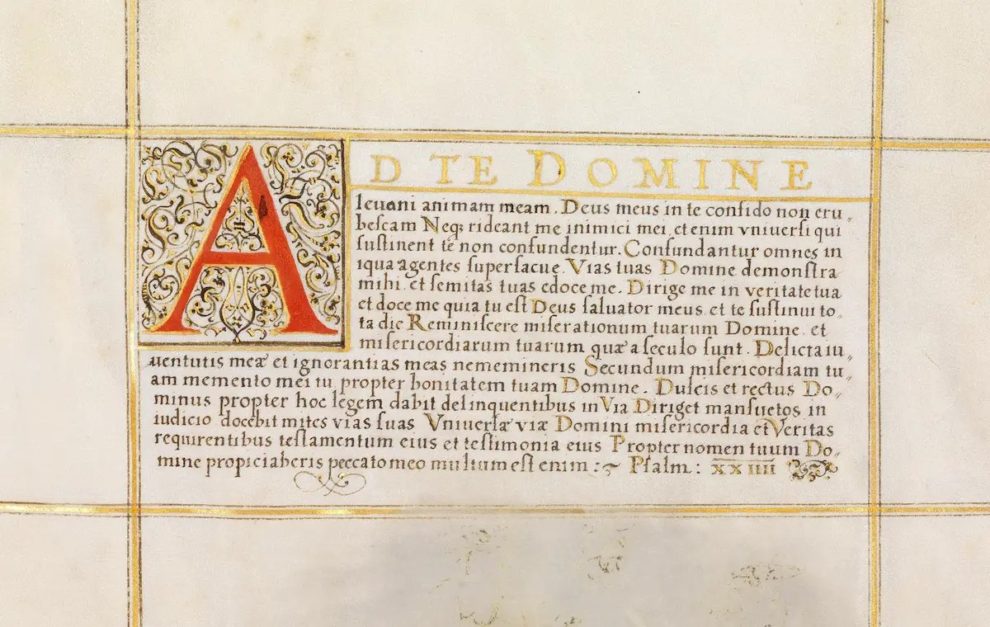 AD TE DOMINE
leuaui animam meam. Deus meus in te confido non eru,
bescam Neq; rideant me inimici mei, et enim vniuersi qui
sustinent te non confundentur. Confundantur omnes in
iqua agentes superfacue. Vias tuas Domine demonstra
mihi. et semitas tuas edoce me. Dirige me in veritate tua
et doce me quia tu est Deus saluator meus. et te sustinui to,
ta die Reminiscere miserationum tuarum Domine. et
misericordiarum tuarum quæ a seculo sunt. Delicta iu,
uentutis meæ et ignorantias meas nememineris Secundum misericordiam tu,
am memento mei tu propter bonitatem tuam Domine. Dulcis et rectus Do,
minus propter hoc legem dabit delinquentibus in Via Diriget mansuetos in
iudicio docebit mites vias suas Vniuersæ viæ Domini misericordia et Veritas
requirentibus testamentum eius et testimonia eius Propter nomen tuum Do,
mine propiciaberis peccato meo multum est enim : Psalm : XXIIII